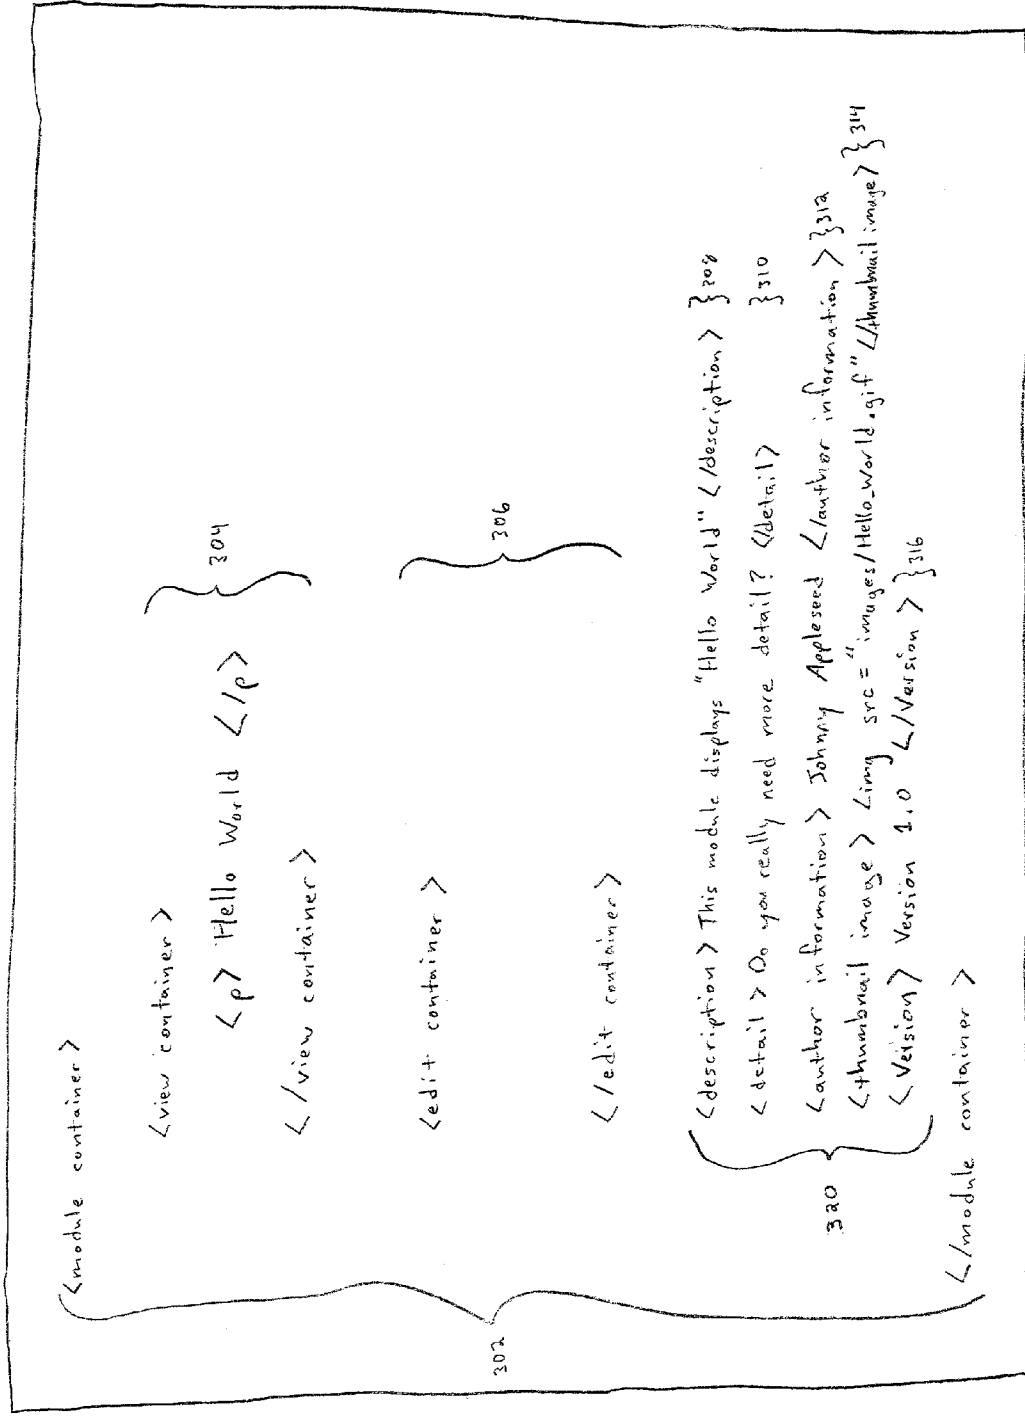 <module container>
<view container>
<p> Hello World </p>
304
</view container>
<edit container>
306
</edit container>
<description> This module displays "Hello World" </description> }308
<detail> Do you really need more detail? </detail> }310
<author information> Johnny Appleseed </author information> }312
<thumbnail image> <img src="images/Hello_World.gif" </thumbnail image> }314
<Version> Version 1.0 </Version> }316
320
</module container>
302